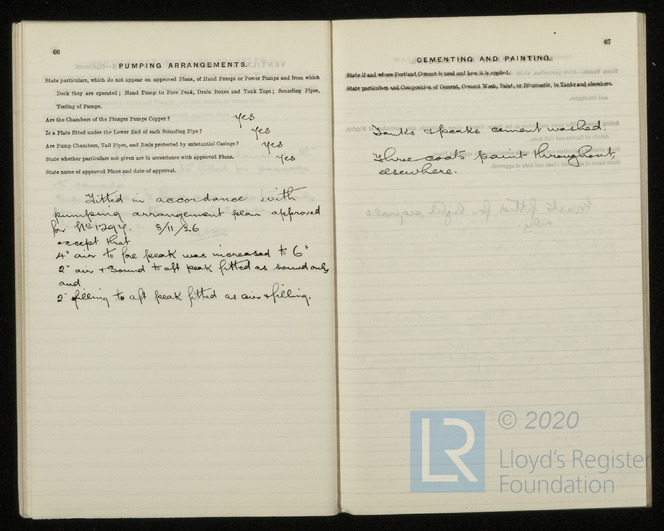 66
PUMPING ARRANGEMENTS.
State particulars, which do not appear on approved Plans, of Hand Pumps or Power Pumps and from which
Deck they are operated; Hand Pump to Fore Peak, Drain Boxes and Tank Tops; Sounding Pipes,
Testing of Pumps.
Are the Chambers of the Plunger Pumps Copper? Yes
Is a Plate fitted under the Lower End of each Sounding Pipe? Yes
Are Pump Chambers, Tail Pipes, and Rods protected by substantial Casings? Yes
State whether particulars not given are in accordance with approved Plans. Yes
State name of approved Plans and date of approval.
Fitted in accordance with
pumping arrangement plan approved
for No 1294. 3/11/26
except that
4" air to fore peak was increased to 6"
2" air & sound to aft peak fitted as sound only
and
2" filling to aft peak fitted as air & filling.
67
CEMENTING AND PAINTING.
State if and where Portland Cement is used and how it is applied.
State particulars and Composition of Cement, Cement Wash, Paint, or Bitumastic, in Tanks and elsewhere.
Tanks & peaks cement washed.
Three coats paint throughout,
elsewhere.
LR
© 2020
Lloyd's Register
Foundation